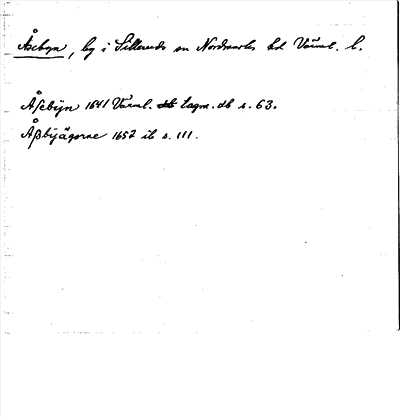 Åsebyn, by i Silleruds sn Nordmarks hd Värml. l.
Åsebyn 1641 Värml. Lagm. db s. 63.
Åßbyägorne 1652 ib s. 111.